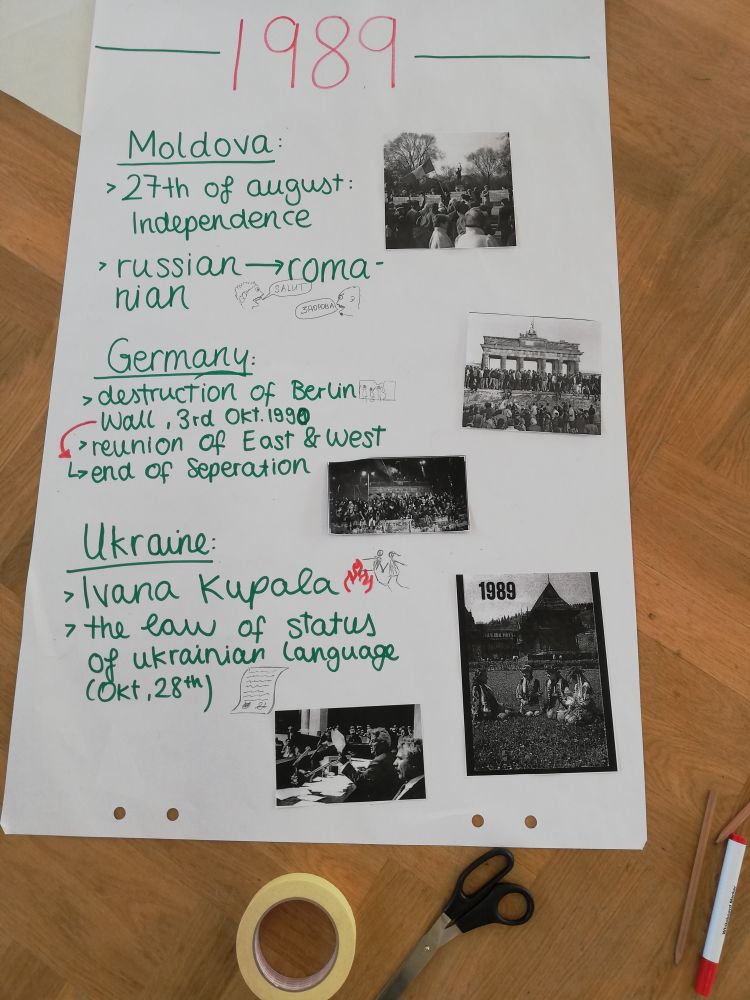 1989
Moldova:
> 27th of august:
Independence
> russian → roma-
nian
SALUT
Germany:
> destruction of Berlin
Wall, 3rd Okt. 1990
> reunion of East & West
↳> end of Seperation
Ukraine:
> Ivana Kupala
> the law of status
of ukrainian language
(Okt, 28th)
1989